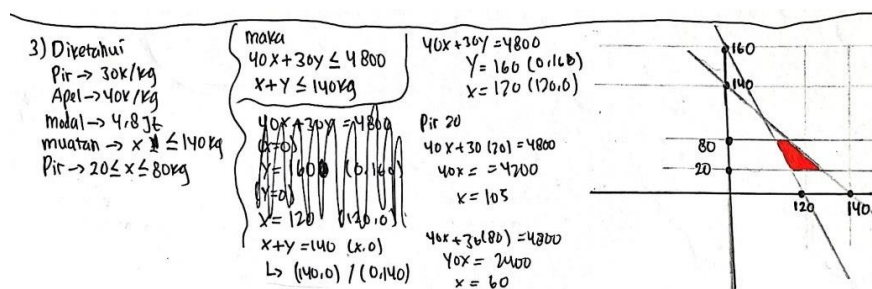 3) Diketahui
Pir → 30k/kg
Apel → 40k/kg
modal → 4,8 Jt
muatan → x ≤ 140kg
Pir → 20 ≤ x ≤ 80kg
maka
40x + 30y ≤ 4800
x + y ≤ 140kg
40x + 30y = 4800
(x=0)
y = 160 (0,160)
(y=0)
x = 120 (120,0)
x + y = 140 (x,0)
↳ (140,0) / (0,140)
40x + 30y = 4800
y = 160 (0,160)
x = 120 (120,0)
Pir 20
40x + 30 (20) = 4800
40x = = 4200
x = 105
40x + 30(80) = 4800
40x = 2400
x = 60
160
140
80
20
120
140